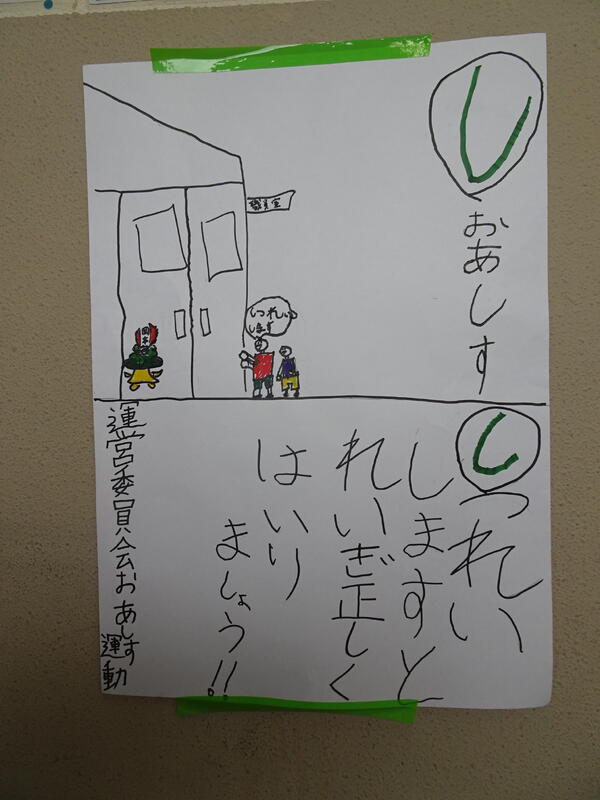 し
おあしす
職員室
しつれい
します
しつれい
しますと
れいぎ正しく
はいり
ましょう!!
運営委員会おあしす運動